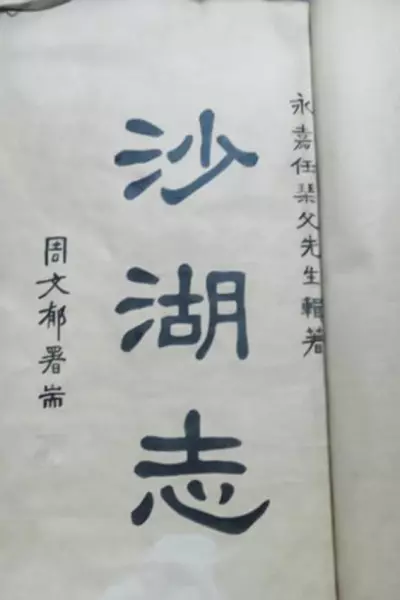 永嘉任桨父先生輯著
沙湖志
周文郁署耑